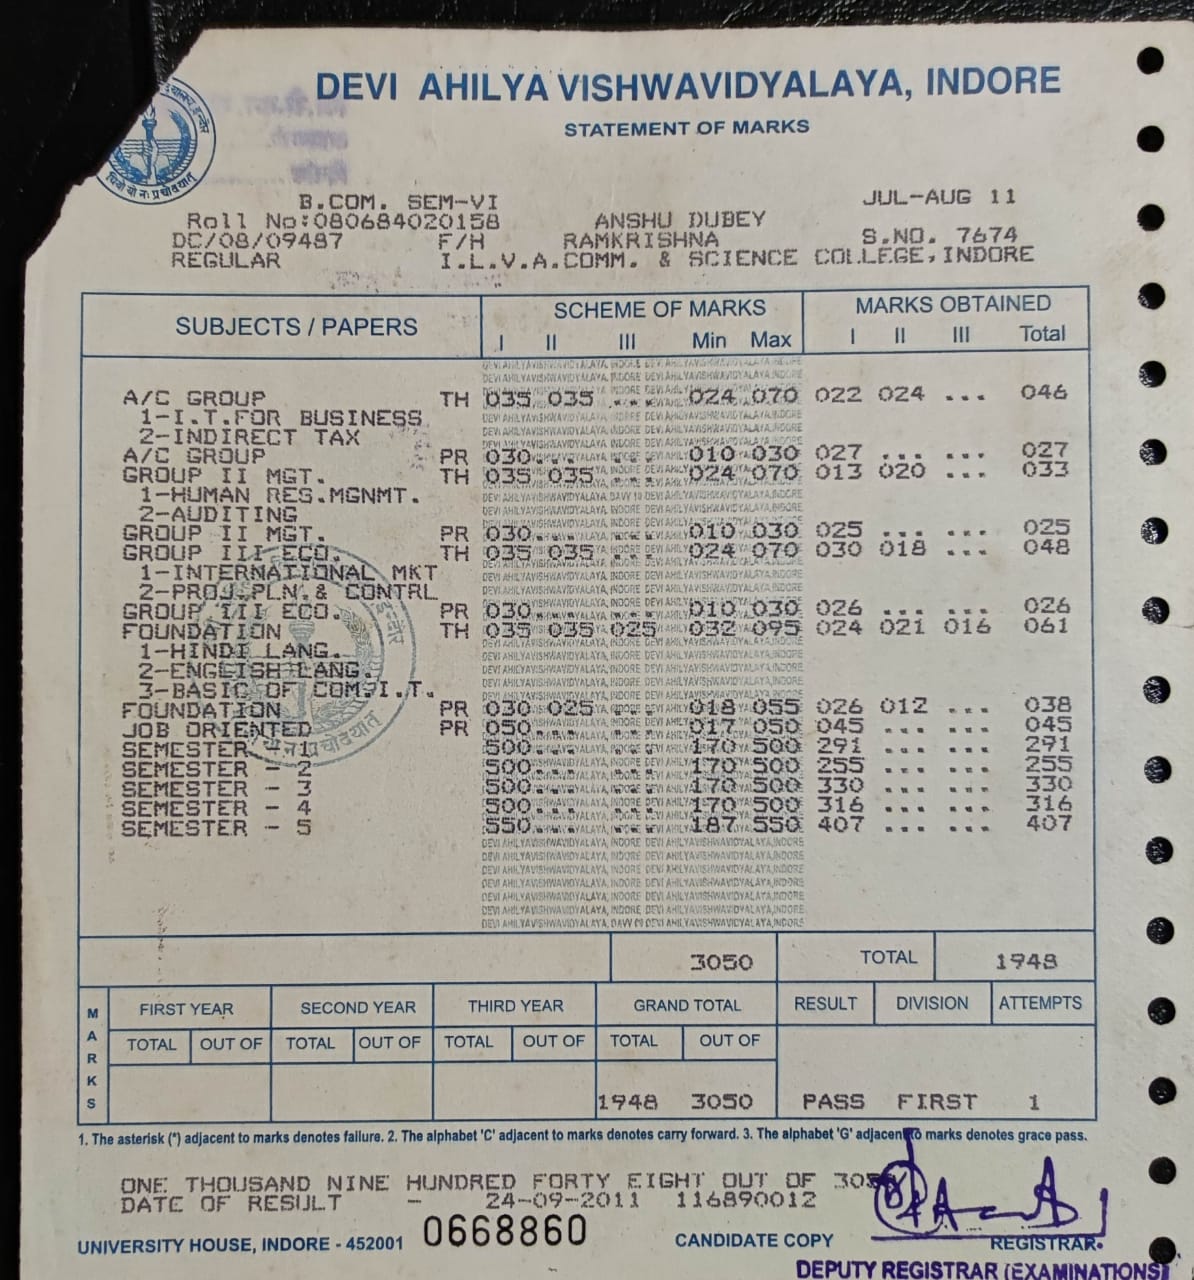 DEVI AHILYA VISHWAVIDYALAYA, INDORE
STATEMENT OF MARKS
B.COM. SEM-VI JUL-AUG 11
Roll No:080684020158 ANSHU DUBEY
DC/08/09487 F/H RAMKRISHNA S.NO. 7674
REGULAR I.L.V.A.COMM. & SCIENCE COLLEGE,INDORE
SUBJECTS / PAPERS SCHEME OF MARKS MARKS OBTAINED
I II III Min Max I II III Total
A/C GROUP TH 035 035 ... 024 070 022 024 ... 046
1-I.T.FOR BUSINESS
2-INDIRECT TAX
A/C GROUP PR 030 ... ... 010 030 027 ... ... 027
GROUP II MGT. TH 035 035 ... 024 070 013 020 ... 033
1-HUMAN RES.MGNMT.
2-AUDITING
GROUP II MGT. PR 030 ... ... 010 030 025 ... ... 025
GROUP III ECO. TH 035 035 ... 024 070 030 018 ... 048
1-INTERNATIONAL MKT
2-PROJ.PLN.& CONTRL
GROUP III ECO. PR 030 ... ... 010 030 026 ... ... 026
FOUNDATION TH 035 035 025 032 095 024 021 016 061
1-HINDI LANG.
2-ENGLISH LANG.
3-BASIC OF COM.I.T.
FOUNDATION PR 030 025 ... 018 055 026 012 ... 038
JOB ORIENTED PR 050 ... ... 017 050 045 ... ... 045
SEMESTER - 1 500 ... ... 170 500 291 ... ... 291
SEMESTER - 2 500 ... ... 170 500 255 ... ... 255
SEMESTER - 3 500 ... ... 170 500 330 ... ... 330
SEMESTER - 4 500 ... ... 170 500 316 ... ... 316
SEMESTER - 5 550 ... ... 187 550 407 ... ... 407
3050 TOTAL 1948
MARKS FIRST YEAR SECOND YEAR THIRD YEAR GRAND TOTAL RESULT DIVISION ATTEMPTS
TOTAL OUT OF TOTAL OUT OF TOTAL OUT OF TOTAL OUT OF
1948 3050 PASS FIRST 1
1. The asterisk (*) adjacent to marks denotes failure. 2. The alphabet 'C' adjacent to marks denotes carry forward. 3. The alphabet 'G' adjacent to marks denotes grace pass.
ONE THOUSAND NINE HUNDRED FORTY EIGHT OUT OF 3050
DATE OF RESULT - 24-09-2011 116890012
UNIVERSITY HOUSE, INDORE - 452001 0668860 CANDIDATE COPY REGISTRAR
DEPUTY REGISTRAR (EXAMINATIONS)